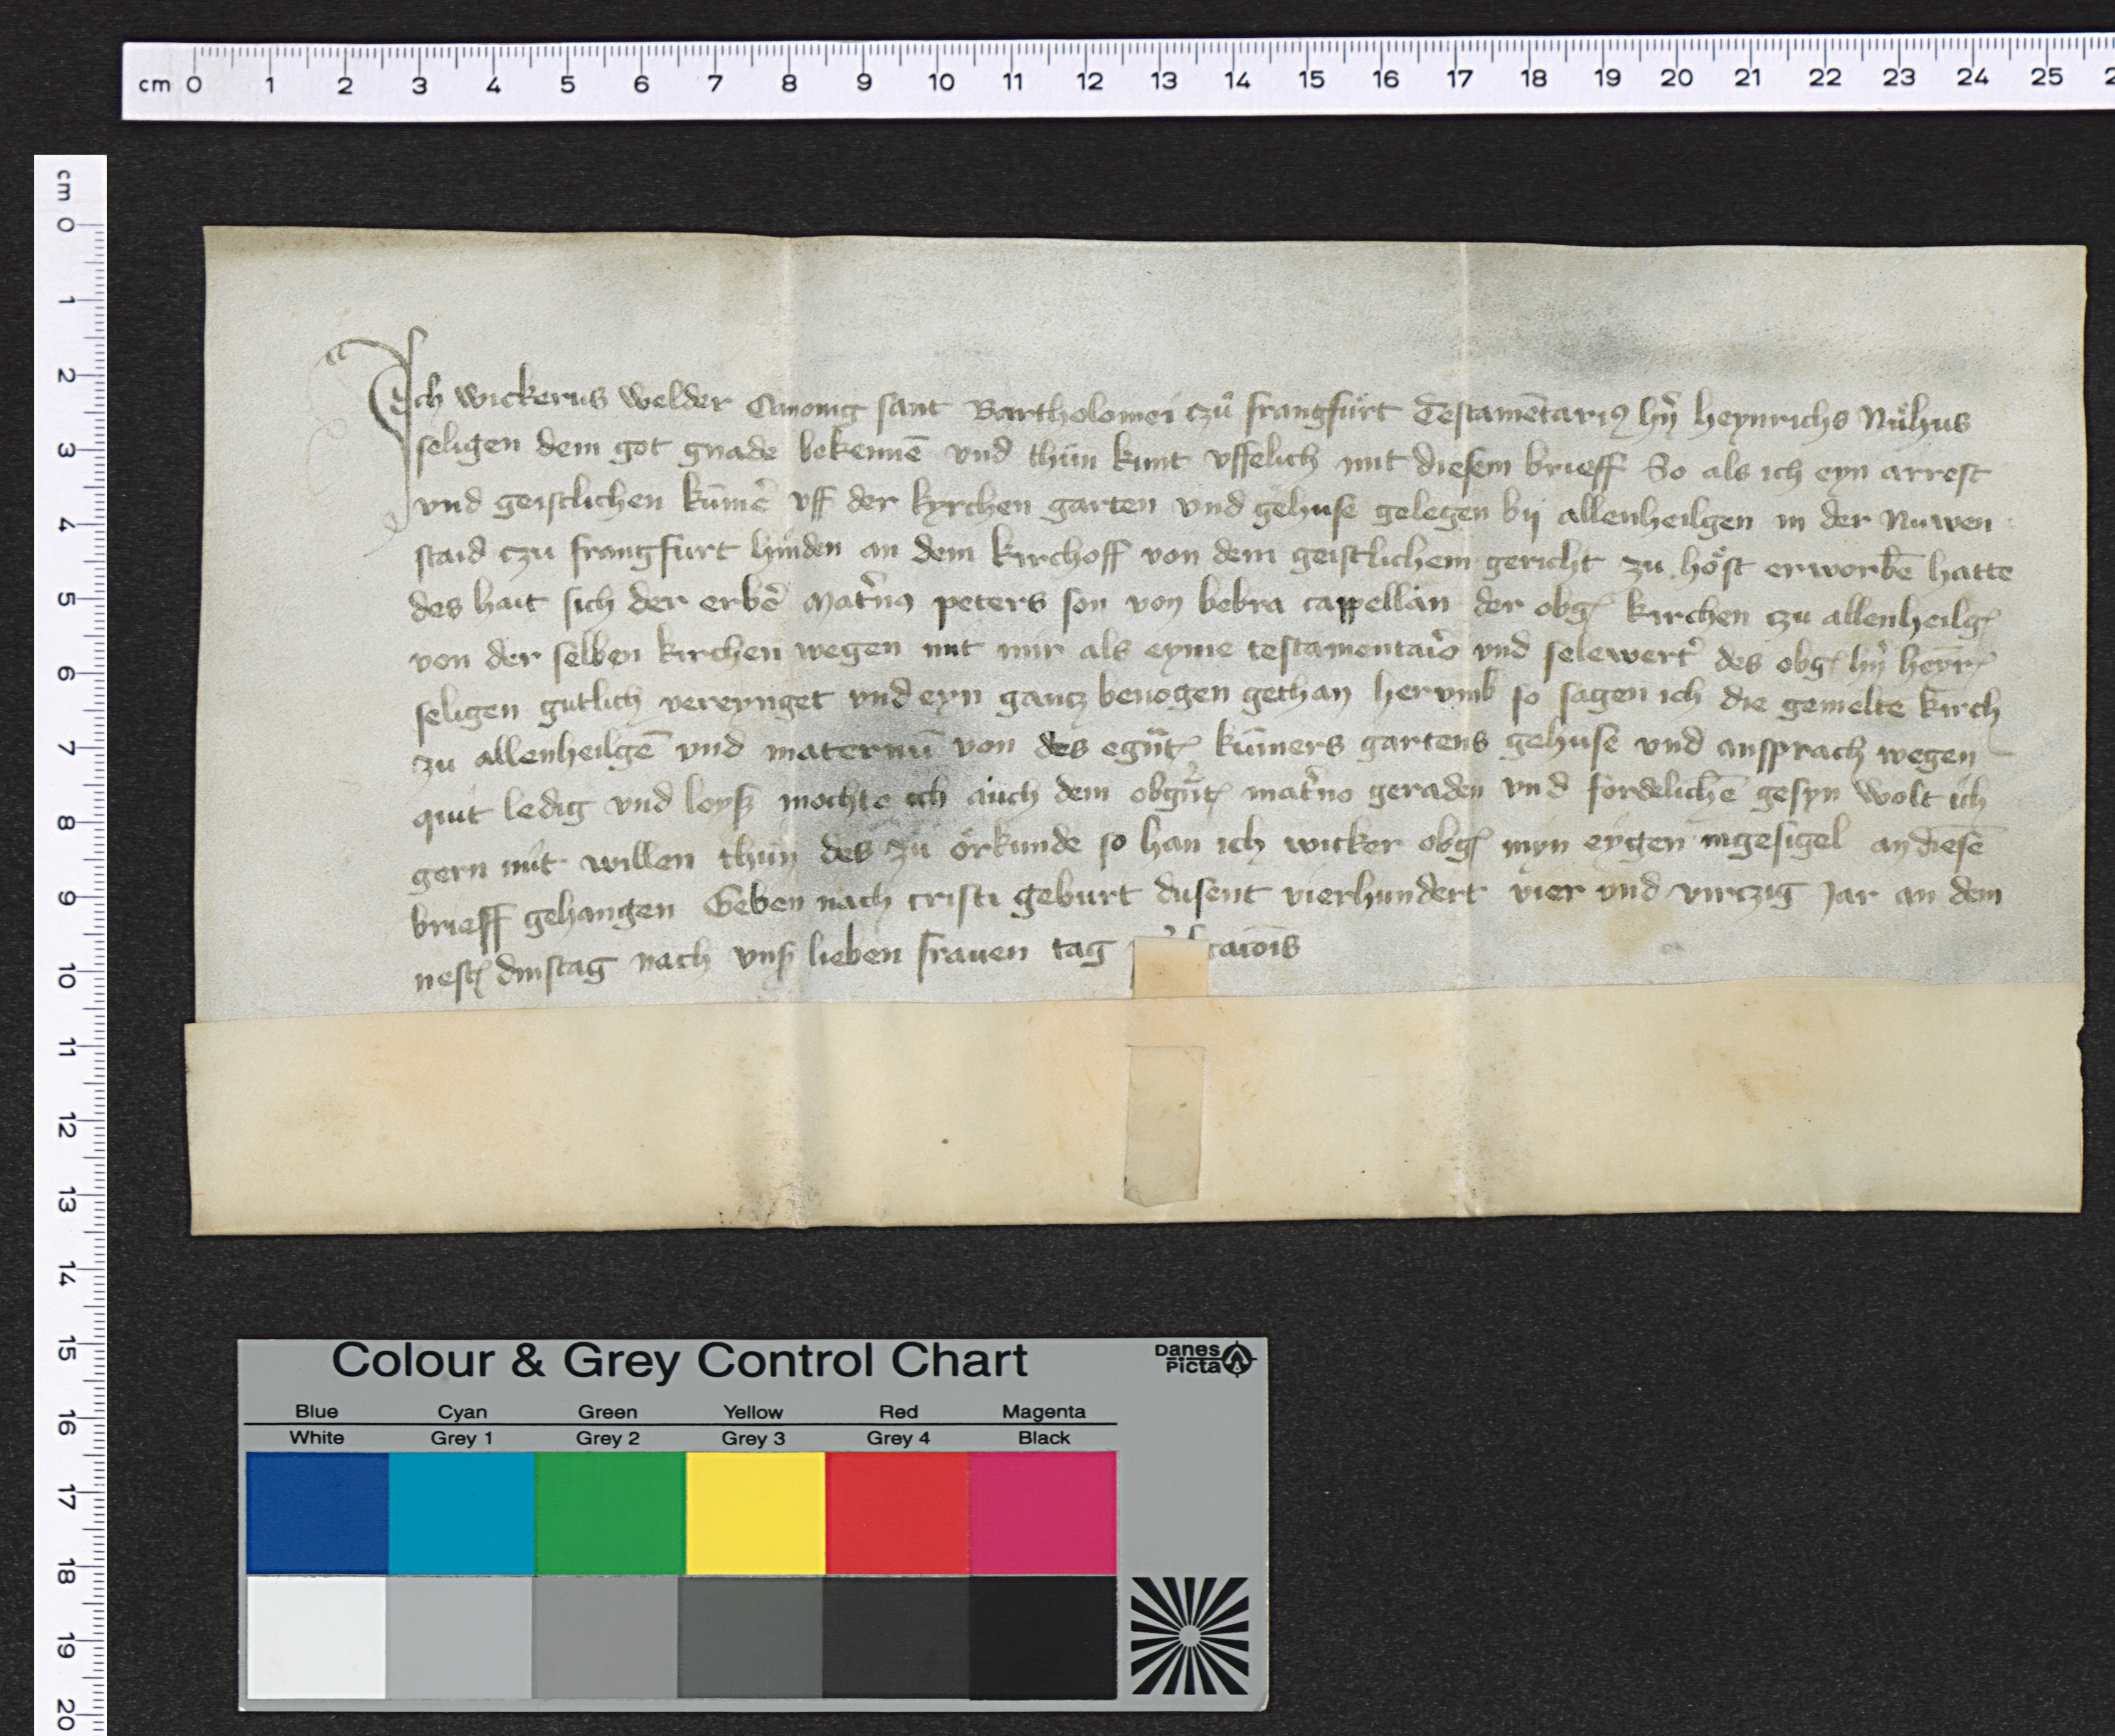 cm 0 1 2 3 4 5 6 7 8 9 10 11 12 13 14 15 16 17 18 19 20 21 22 23 24 25 2
cm 0 1 2 3 4 5 6 7 8 9 10 11 12 13 14 15 16 17 18 19 20
Ich wickerus welder Canonig sant Bartholomei czů frangfurt Testamētariꝯ hn̄ heynrichs Nuͤhus
seligen dem got gnade bekennē vnd thůn kunt vffelich mit diesem brieff So als ich eyn arrest
vnd geistlichen kūmē vff der kyrchen garten vnd gehuse gelegen bij allenheilgen in der Nuwen
staid czu frangfurt hinden an dem kirchoff von dem geistlichem gericht zu hoͤst erworbē hatte
des hait sich der erbē Mat̄nꝯ peters son von bebra cappellan der obg kirchen zu allenheilg
von der selben kirchen wegen mit mir als eyme testamentar̄o vnd selewert̄ des obg hn̄ heyr̄
seligen gutlich vereyniget vnd eyn gancz benogen gethan hervmb so sagen ich die gemelte kirch
zu allenheilgē vnd maternū von des egūt kūmers gartens gehuse vnd anssprach wegen
quit ledig vnd loyß mochte ich auch dem obgūt mat̄no geraden vnd fordelichē gesyn wolt ich
gern mit willen thun des zu oͤrkunde so han ich wicker obg myn eygen ingesigel an diesē
brieff gehangen Geben nach cristi geburt dusent vierhundert vier vnd virczig Jar an dem
nest dinstag nach vnß lieben frauen tag
Colour & Grey Control Chart
Danes
Picta
Blue Cyan Green Yellow Red Magenta
White Grey 1 Grey 2 Grey 3 Grey 4 Black